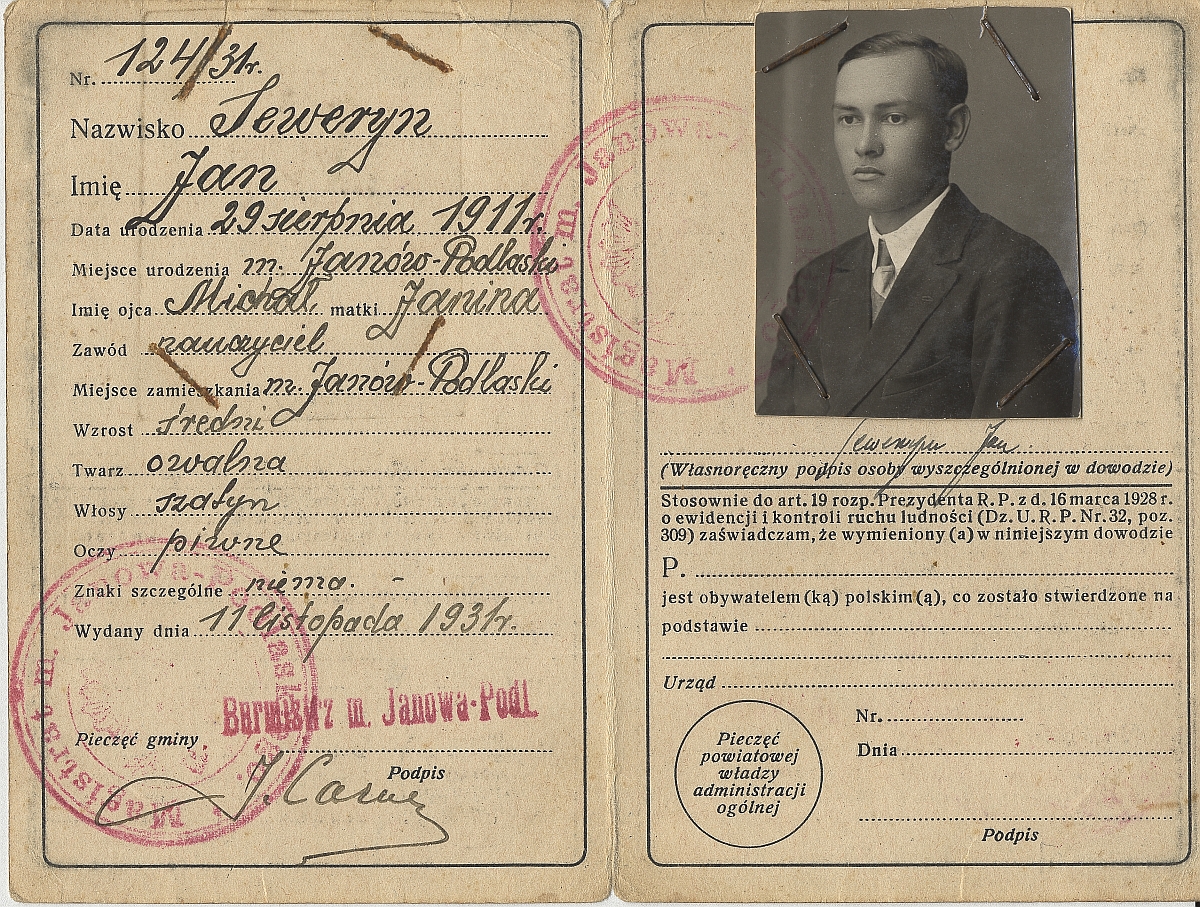 Nr. 124/31r.
Nazwisko Seweryn
Imię Jan
Data urodzenia 29 sierpnia 1911r.
Miejsce urodzenia m. Janów-Podlaski
Imię ojca Michał matki Janina
Zawód nauczyciel
Miejsce zamieszkania m. Janów-Podlaski
Wzrost średni
Twarz owalna
Włosy szatyn
Oczy piwne
Znaki szczególne niema. -
Wydany dnia 11 listopada 1931r.
Magistrat m. Janowa-Podlaskiego
Burmistrz m. Janowa-Podl.
Pieczęć gminy
Podpis
Magistrat m. Janowa-
Seweryn Jan
(Własnoręczny podpis osoby wyszczególnionej w dowodzie)
Stosownie do art. 19 rozp. Prezydenta R. P. z d. 16 marca 1928 r.
o ewidencji i kontroli ruchu ludności (Dz. U. R. P. Nr. 32, poz.
309) zaświadczam, że wymieniony (a) w niniejszym dowodzie
P.
jest obywatelem (ką) polskim (ą), co zostało stwierdzone na
podstawie
Urząd
Nr.
Dnia
Pieczęć
powiatowej
władzy
administracji
ogólnej
Podpis